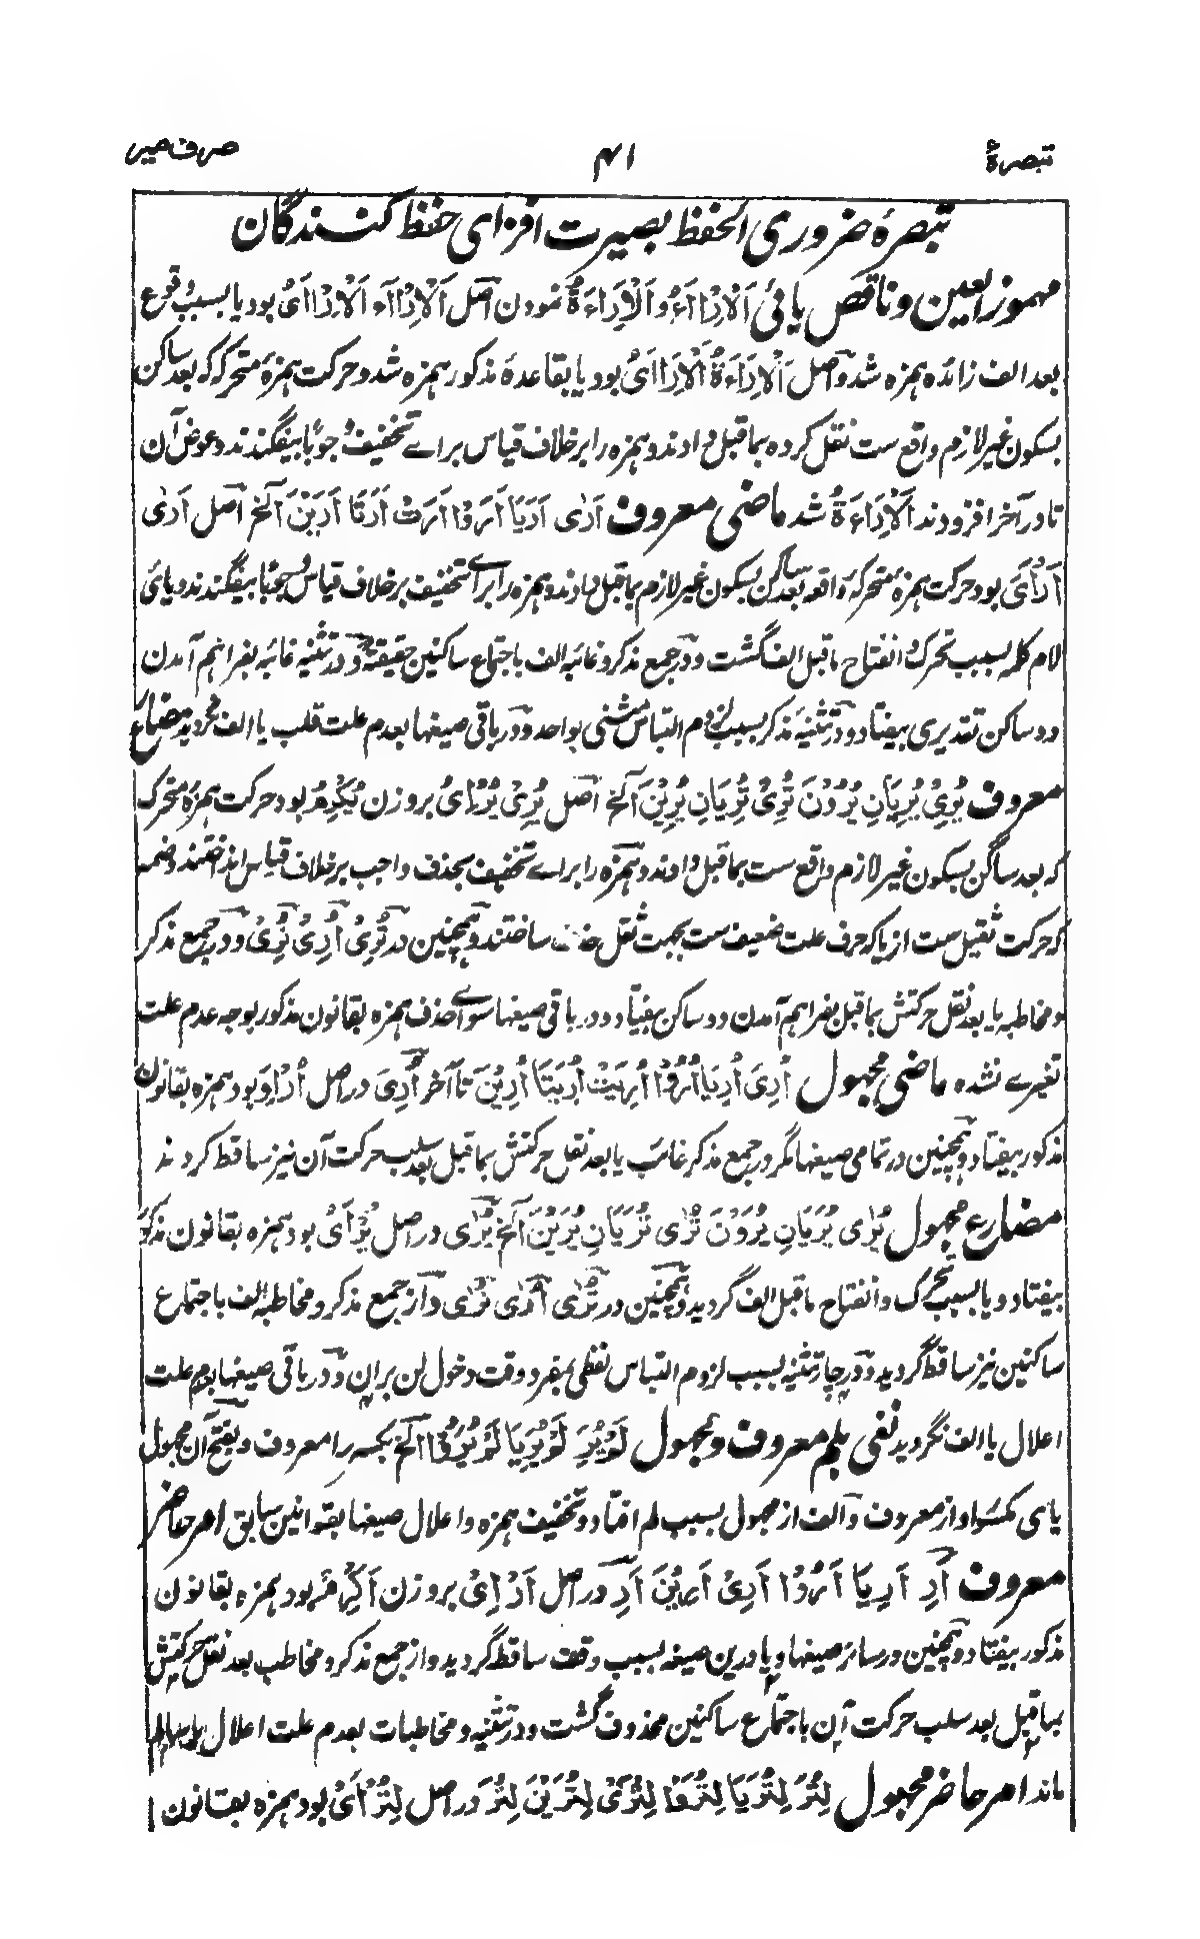 تبصرۂ
۴۱
صرف میر
تبصرۂ ضروری الحفظ بصیرت افزای حفظ کنندگان
مہموز العین و ناقص یائی اَلْاِرَاءُ وَاَلْاِرَاءَةُ نمودن اصل اَلْاِرَاءُ اَلْاِرْاَایُ بود یا بسبب وقوع
بعد الف زائدہ ہمزہ شد و اصل اَلْاِرَاءَةُ اَلْاِرْاَایُ بود یا بقاعدۂ مذکور ہمزہ شد و حرکت ہمزۂ متحرکہ کہ بعد ساکن
بسکون غیر لازم واقع ست نقل کردہ بماقبل دادند و ہمزہ را برخلاف قیاس براے تخفیف وجوبًا بیفگندند و عوض آن
تا در آخر افزودند اَلْاِرَاءَةُ شد ماضی معروف اَرٰی اَرَیَا اَرَوْا اَرَتْ اَرَتَا اَرَیْنَ آلخ اصل اَرٰی
اَرْأَیَ بود حرکت ہمزۂ متحرکہ واقعہ بعد ساکن بسکون غیر لازم بماقبل دادند و ہمزہ را براے تخفیف برخلاف قیاس وجوبًا بیفگندند و یای
لام کلمہ بسبب تحرک و انفتاح ماقبل الف گشت و در جمع مذکر و غائبہ الف باجتماع ساکنین حقیقةً و در تثنیہ غائبہ بفراہم آمدن
دو ساکن تقدیری بیفتاد و در تثنیہ مذکر بسبب لزوم التباس مثنی بواحد و در باقی صیغہا بعدم علت قلب یا الف نگردید مضارع
معروف یُرِیْ یُرِیَانِ یُرُوْنَ تُرِیْ تُرِیَانِ یُرِیْنَ آلخ اصل یُرِیْ یُرْاِیُ بروزن یُکْرِمُ بود حرکت ہمزہ متحرک
کہ بعد ساکن بسکون غیر لازم واقع ست بماقبل دادند و ہمزہ را براے تخفیف بحذف واجب برخلاف قیاس انداختند و ضمہ
کہ حرکت ثقیل ست از یا کہ حرف علت ضعیف ست بجہت ثقل ساختند و ہمچنین در تُرِیْ اُرِیْ نُرِیْ و در جمع مذکر
و مخاطبہ یا بعد نقل حرکتش بماقبل بفراہم آمدن دو ساکن بیفتاد و در باقی صیغہا سواے حذف ہمزہ بقانون مذکور بوجہ عدم علت
تغیرے نشدہ ماضی مجہول اُرِیَ اُرِیَا اُرُوْا اُرِیَتْ اُرِیَتَا اُرِیْنَ تا آخر اُرِیَ در اصل اُرْاِیَ بود ہمزہ بقانون
مذکور بیفتاد و ہمچنین در تمامی صیغہا مگر در جمع مذکر غائب یا بعد نقل حرکتش بماقبل بعد سلب حرکت آن نیز ساقط کردند
مضارع مجہول یُرٰی یُرَیَانِ یُرَوْنَ تُرٰی تُرَیَانِ یُرَیْنَ آلخ یُرٰی در اصل یُرْأَیُ بود ہمزہ بقانون مذکور
بیفتاد و یا بسبب تحرک و انفتاح ماقبل الف گردید و ہمچنین در تُرٰی اُرٰی نُرٰی و از جمع مذکر و مخاطبہ الف باجتماع
ساکنین نیز ساقط گردید و در چار تثنیہ بسبب لزوم التباس لفظی بمفرد وقت دخول لن بران و در باقی صیغہا بعدم علت
اعلال یا الف نگردید نفی بلم معروف و مجہول لَمْ یُرِ لَمْ یُرِیَا لَمْ یُرُوْا آلخ بکسر را معروف و بفتح آن مجہول
یای کمسور از معروف و الف از مجہول بسبب لم افتاد و تخفیف ہمزہ و اعلال صیغہا بقوانین سابق امر حاضر
معروف اَرِ اَرِیَا اَرُوْا اَرِیْ اَرِیْنَ اَرِ در اصل اَرْاِیْ بروزن اَکْرِمْ بود ہمزہ بقانون
مذکور بیفتاد و ہمچنین در سائر صیغہا و یا درین صیغہ بسبب وقف ساقط گردید و از جمع مذکر و مخاطب بعد نقل حرکتش
بماقبل بعد سلب حرکت آن باجتماع ساکنین محذوف گشت و در تثنیہ و مخاطبات بعدم علت اعلال یا سالم
ماند امر حاضر مجہول لِتُرَ لِتُرَیَا لِتُرَوْا لِتُرَیْ لِتُرَیْنَ لِتُرَ در اصل لِتُرْأَیْ بود ہمزہ بقانون